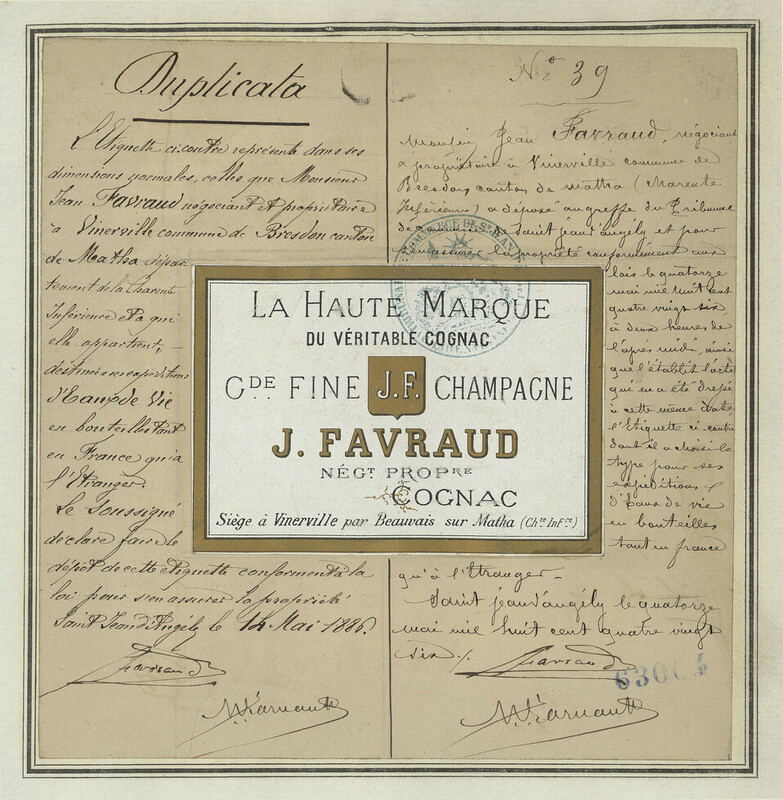 Duplicata
L'Etiquette ci-contre représente dans ses
dimensions normales, celles que Monsieur
Jean Favraud négociant et propriétaire
à Vinerville commune de Bresdon canton
de Matha dépar
tement de la Charente
Inférieure et à qui
elle appartient,
destine à ses expéditions
d'Eaux de Vie
en bouteilles tant
en France qu'à
l'Etranger.
Le Soussigné
déclare faire le
dépôt de cette étiquette conformént à la
loi pour s'en assurer la propriété
Saint Jean d'Angély le 14 Mai 1886.
Favraud
N° 39
Monsieur Jean Favraud, négociant
et propriétaire à Vinerville commune de
Bresdon canton de Matha (Charente
Inférieure) a déposé au greffe du Tribunal
de Saint jean d'angély et pour
s'en assurer la propriété conformément aux
lois le quatorze
mai mil huit cent
quatre vingt six
à deux heures de
l'après midi, ainsi
que l'établit l'acte
qui en a été dressé
à cette même date
l'Etiquette ci-contre
dont il a choisi le
type pour ses
expéditions
d'Eaux de vie
en bouteilles
tant en france
qu'à l'Etranger_
Saint jean d'angély le quatorze
mai mil huit cent quatre vingt
six ./.
Favraud
LA HAUTE MARQUE
DU VÉRITABLE COGNAC
GDE FINE J.F. CHAMPAGNE
J. FAVRAUD
NÉGT PROPRE
COGNAC
Siège à Vinerville par Beauvais sur Matha (Chte Infre)